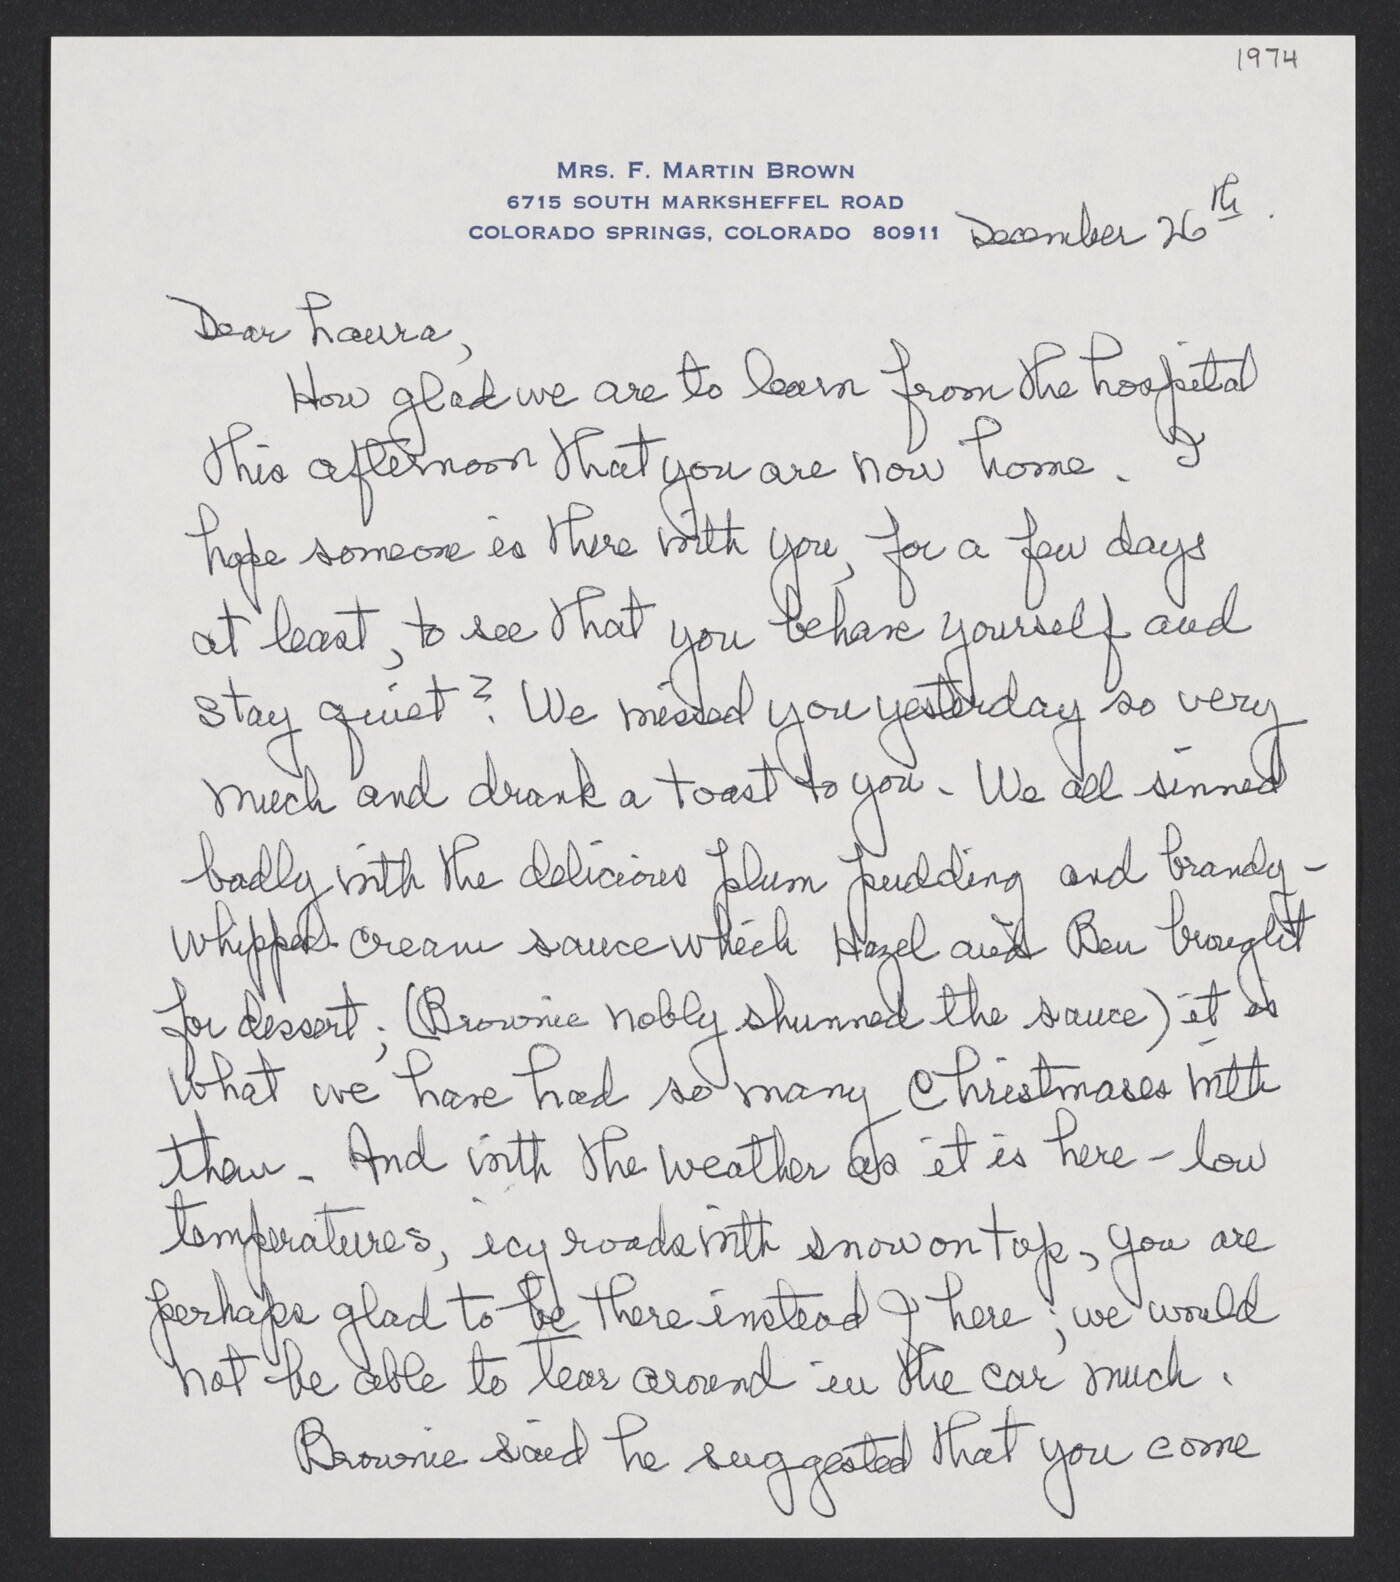 1974
MRS. F. MARTIN BROWN
6715 SOUTH MARKSHEFFEL ROAD
COLORADO SPRINGS, COLORADO 80911
December 26th.
Dear Laura,
How glad we are to learn from the hospital
this afternoon that you are now home. I
hope someone is there with you, for a few days
at least, to see that you behave yourself and
stay quiet? We missed you yesterday so very
much and drank a toast to you. We all sinned
badly with the delicious plum pudding and brandy-
whipped cream sauce which Hazel and Ben brought
for dessert; (Brownie nobly shunned the sauce) it is
what we have had so many Christmases with
them. And with the weather as it is here - low
temperatures, icy roads with snow on top, you are
perhaps glad to be there instead of here; we would
not be able to tear around in the car much.
Brownie said he suggested that you come